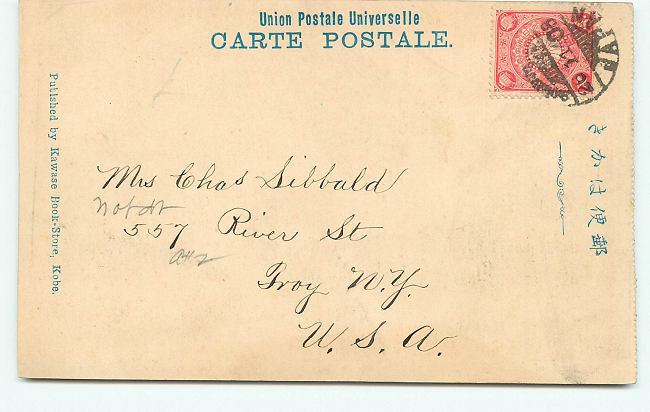 Union Postale Universelle
CARTE POSTALE.
JAPAN
きかは便郵
Published by Kawase Book-Store, Kobe.
Mrs Chas Sibbald
not at
557 River St
Troy N.Y.
U.S.A.